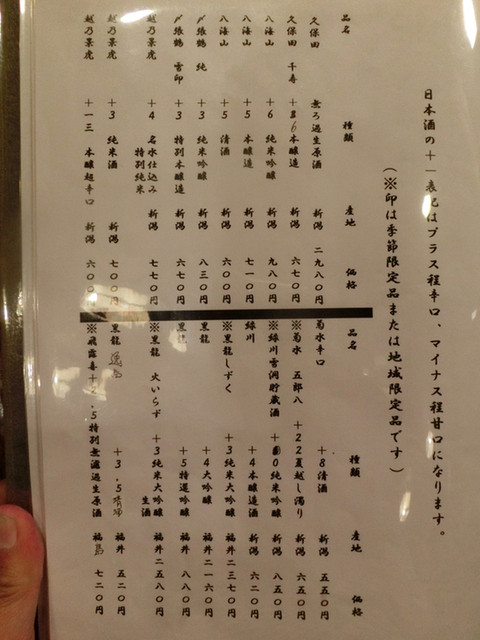 日本酒の＋－表記はプラス程辛口、マイナス程甘口になります。
（※印は季節限定品または地域限定品です）
品名 種類 産地 価格
久保田 無ろ過生原酒 新潟 二九八〇円
久保田 千寿 ＋6本醸造 新潟 六七〇円
八海山 ＋6 純米吟醸 新潟 九八〇円
八海山 ＋5 本醸造 新潟 七一〇円
八海山 ＋5 清酒 新潟 六〇〇円
〆張鶴 純 ＋3 純米吟醸 新潟 八三〇円
〆張鶴 雪印 ＋3 特別本醸造 新潟 六七〇円
越乃景虎 ＋4 名水仕込み特別純米 新潟 七七〇円
越乃景虎 ＋3 純米酒 新潟 七〇〇円
越乃景虎 ＋一三 本醸超辛口 新潟 六〇〇
品名 種類 産地 価格
菊水辛口 ＋8清酒 新潟 五五〇円
※菊水 五郎八 ＋22夏越し濁り 新潟 六五〇円
※緑川雪洞貯蔵酒 0純米吟醸 新潟 八五〇円
緑川 ＋4本醸造酒 新潟 六二〇円
※黒龍しずく ＋3純米大吟醸 福井 二三七〇円
黒龍 ＋4大吟醸 福井 二一六〇円
黒龍 ＋5特選吟醸 福井 八八〇円
※黒龍 火いらず ＋3純米大吟醸生酒 福井 二五八〇円
黒龍 ＋3.5 福井 五二〇円
※飛露喜＋.5特別無濾過生原酒 福島 七二〇円